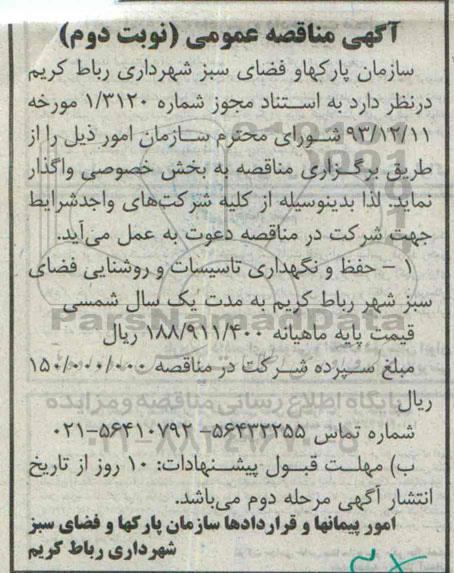 آگهی مناقصه عمومی (نوبت دوم)
سازمان پارکهاو فضای سبز شهرداری رباط کریم
درنظر دارد به استناد مجوز شماره ۱/۳۱۲۰ مورخه
۹۳/۱۲/۱۱ شورای محترم سازمان امور ذیل را از
طریق برگزاری مناقصه به بخش خصوصی واگذار
نماید. لذا بدینوسیله از کلیه شرکت‌های واجدشرایط
جهت شرکت در مناقصه دعوت به عمل می‌آید.
۱ – حفظ و نگهداری تاسیسات و روشنایی فضای
سبز شهر رباط کریم به مدت یک سال شمسی
ParsNamadData
قیمت پایه ماهیانه ۱۸۸/۹۱۱/۴۰۰ ریال
مبلغ سپرده شرکت در مناقصه ۱۵۰/۰۰۰/۰۰۰
ریال
پایگاه اطلاع رسانی مناقصه و مزایده
شماره تماس ۵۶۴۳۲۲۵۵- ۵۶۴۱۰۷۹۲-۰۲۱
ب) مهلت قبول پیشنهادات: ۱۰ روز از تاریخ
انتشار آگهی مرحله دوم می‌باشد.
امور پیمانها و قراردادها سازمان پارکها و فضای سبز
شهرداری رباط کریم